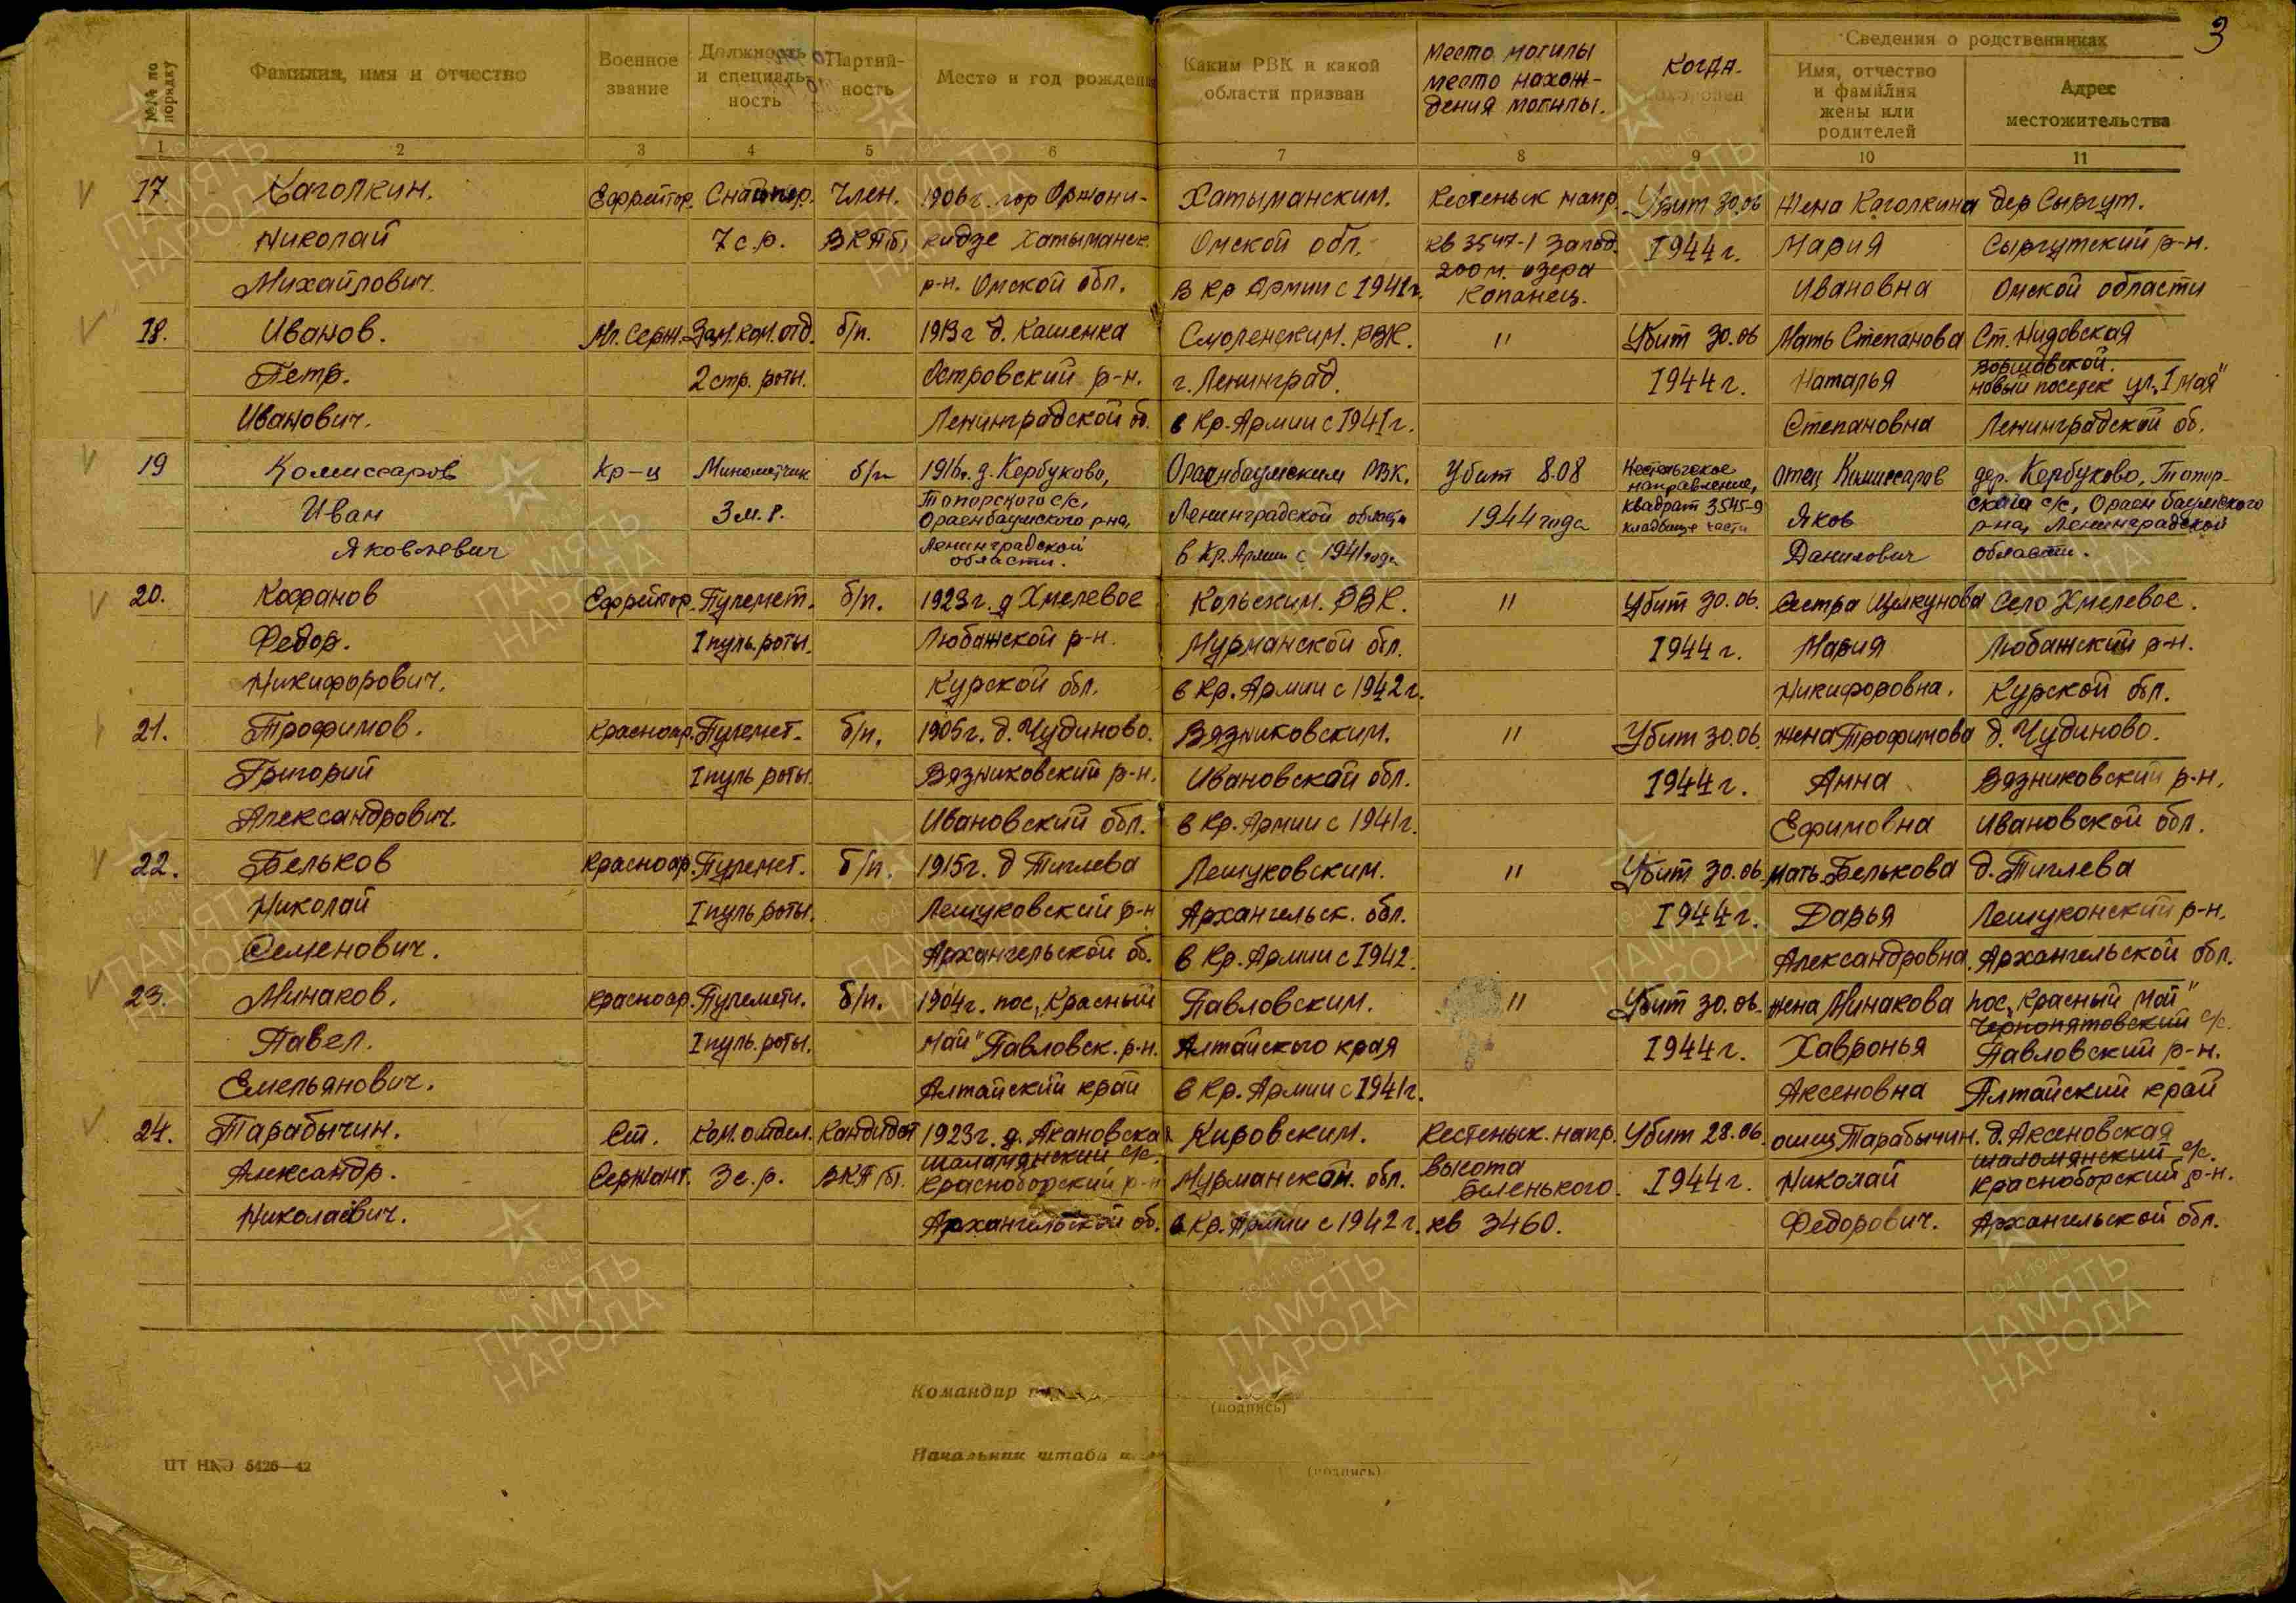 3
№№ по порядку
Фамилия, имя и отчество
Военное звание
Должность и специаль- ность
Партий- ность
Место и год рождени
Каким РВК и какой области призван
Место могилы место нахож- дения могилы.
когда.
Сведения о родственниках
Имя, отчество и фамилия жены или родителей
Адрес местожительства
1 2 3 4 5 6 7 8 9 10 11
17. Каголкин. Ефрейтор. Снайпер. Член. 1906г. гор Оржони- Хатыманским. Кестеньск напр. Убит 30.06 Жена Каголкина дер Сыргут.
Николай 7 с.р. ВКП(б) кидзе Хатыманск. Омской обл. кв 3547-1 Запад. 1944 г. Мария Сыргутский р-н.
200 м. озера
Михайлович. р-н. Омской обл. в Кр Армии с 1941г. Копанец. Ивановна Омской области
18. Иванов. Мл. Серж. Зам. ком. отд. б/п. 1913г д. Кашенка Смоленским. РВК. " Убит 30.06 Мать Степанова Ст. Нидовская
Варшавской.
Петр. 2 стр. роты. Островский р-н. г. Ленинград. 1944 г. Наталья новый поселек ул. "1 мая"
Иванович. Ленинградской об. в Кр. Армии с 1941 г. Степановна Ленинградской об.
19 Комиссаров Кр-ц Минометчик б/п 1916г. д. Кербуково, Ораенбаумским РВК. Убит 8.08 направление, отец Комиссаров дер. Кербуково, Топор-
Иван 3 м.р. Топорского с/с, Ораенбаумского р-на, Ленинградской области 1944 года квадрат 3545-9 кладбище части Яков ского с/с, Ораенбаумского р-на, Ленинградской
Яковлевич Ленинградской области. в Кр. Армии с 1941 года Данилович области.
20. Кофанов Ефрейтор. Пулемет. б/п. 1923г. д Хмелевое Кольским. РВК. " Убит 30.06. Сестра Щелкунова Село Хмелевое.
Федор. I пуль. роты. Любажской р-н. Мурманской обл. 1944 г. Мария Любажский р-н.
Никифорович. Курской обл. в Кр. Армии с 1942 г. Никифоровна. Курской обл.
21. Трофимов. Красноар. Пулемет. б/п. 1905г. д. Чудиново. Вязниковским. " Убит 30.06. жена Трофимова д. Чудиново.
Григорий I пуль роты. Вязниковский р-н. Ивановской обл. 1944 г. Анна Вязниковский р-н.
Александрович. Ивановский обл. в Кр. Армии с 1941 г. Ефимовна Ивановской обл.
22. Бельков Красноар. Пулемет. б/п. 1915г. д Тиглева Лешуковским. " Убит 30.06 мать Белькова д. Тиглева
Николай I пуль роты. Лешуковский р-н Архангельск. обл. 1944 г. Дарья Лешуконский р-н.
Семенович. Архангельской об. в Кр. Армии с 1942. Александровна. Архангельской обл.
23. Минаков. Красноар. Пулемети. б/п. 1904г. пос. "Красный Павловским. " Убит 30.06. жена Минакова пос. "Красный Май"
Чернопятовский с/с.
Павел. I пуль. роты. Май" Павловск. р-н. Алтайского края 1944 г. Хавронья Павловский р-н.
Емельянович. Алтайский край в Кр. Армии с 1941 г. Аксеновна Алтайский край
24. Тарабычин. Ст. Ком. отдел. Кандидат 1923г. д. Акановска Кировским. Кестеньк. напр. Убит 28.06. отец Тарабычин. д. Аксеновская
шаломянский с/с. шаломянский с/с.
Александр. Сержант. 3 с.р. ВКП(б). Красноборский р-н Мурманской. обл. высота Беленького. 1944 г. Николай Красноборский р-н.
Николаевич. Архангельской об. в Кр. Армии с 1942 г. кв 3460. Федорович. Архангельской обл.
Командир
(подпись)
Начальник штаба
(подпись)
ЦТ НКО 5426—42
1941-1945
ПАМЯТЬ
НАРОДА